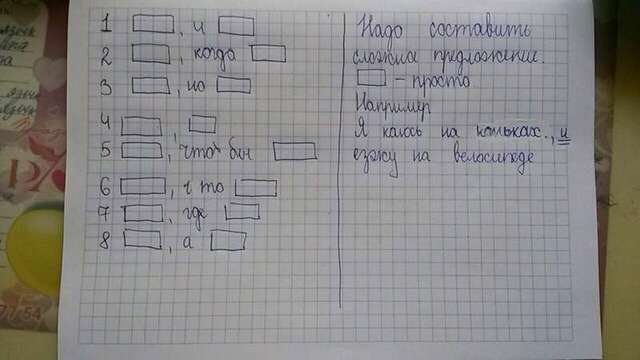 1 , и
2 , когда
3 , но
4 ,
5 , что бы
6 , что
7 , где
8 , а
Надо составить
сложные предложение.
– просто
Например
Я каюсь на коньках., и
езжу на велосипеде